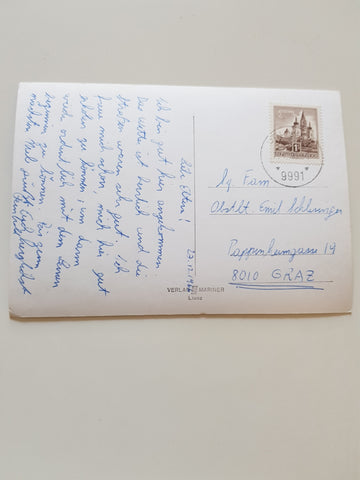 Liebe Eltern!
Ich bin gut hier angekommen.
Das Wetter ist herrlich und die
Straßen waren sehr gut. Ich
freue mich schon, mich hier gut
erholen zu können, um dann
wieder ordentlich mit dem Lernen
beginnen zu können. Bis zum
nächsten Mal grüßt Euch herzlichst
27.12.
VERLAG MARINER
Lienz
9991
Fam
Obstlt. Emil
Pappenheimgasse 19
8010 GRAZ